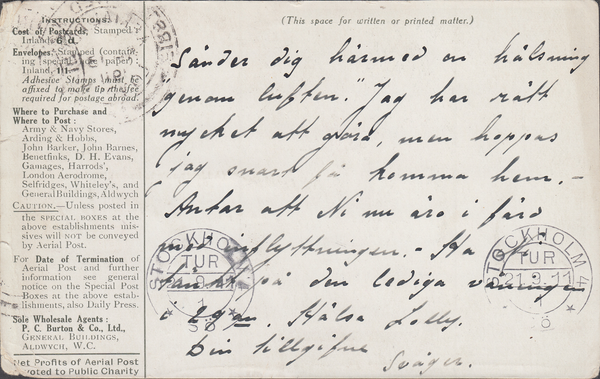 INSTRUCTIONS:
Cost of Postcards, Stamped
Inland, 6d.
Envelopes, Stamped (contain-
ing special paper)
Inland,
Adhesive Stamps must be
affixed to make up the fee
required for postage abroad.
Where to Purchase and
Where to Post:
Army & Navy Stores,
Arding & Hobbs,
John Barker, John Barnes,
Benetfinks, D. H. Evans,
Gamages, Harrods',
London Aerodrome,
Selfridges, Whiteley's, and
General Buildings, Aldwych
CAUTION.—Unless posted in
the SPECIAL BOXES at the
above establishments mis-
sives will NOT be conveyed
by Aerial Post.
For Date of Termination of
Aerial Post and further
information see general
notice on the Special Post
Boxes at the above estab-
lishments, also Daily Press.
Sole Wholesale Agents:
P. C. Burton & Co., Ltd.,
GENERAL BUILDINGS,
ALDWYCH, W.C.
Net Profits of Aerial Post
voted to Public Charity
(This space for written or printed matter.)
Sänder dig härmed en hälsning
"genom luften." Jag har rätt
mycket att göra, men hoppas
jag snart få komma hem.-
Antar att Ni nu äro i färd
med inflyttningen.- Ha
på den lediga våningen
i Hälsa Lolly.
Din tillgifne
Svåger.
STOCKHOLM
TUR
STOCKHOLM 4
TUR
21.9.11